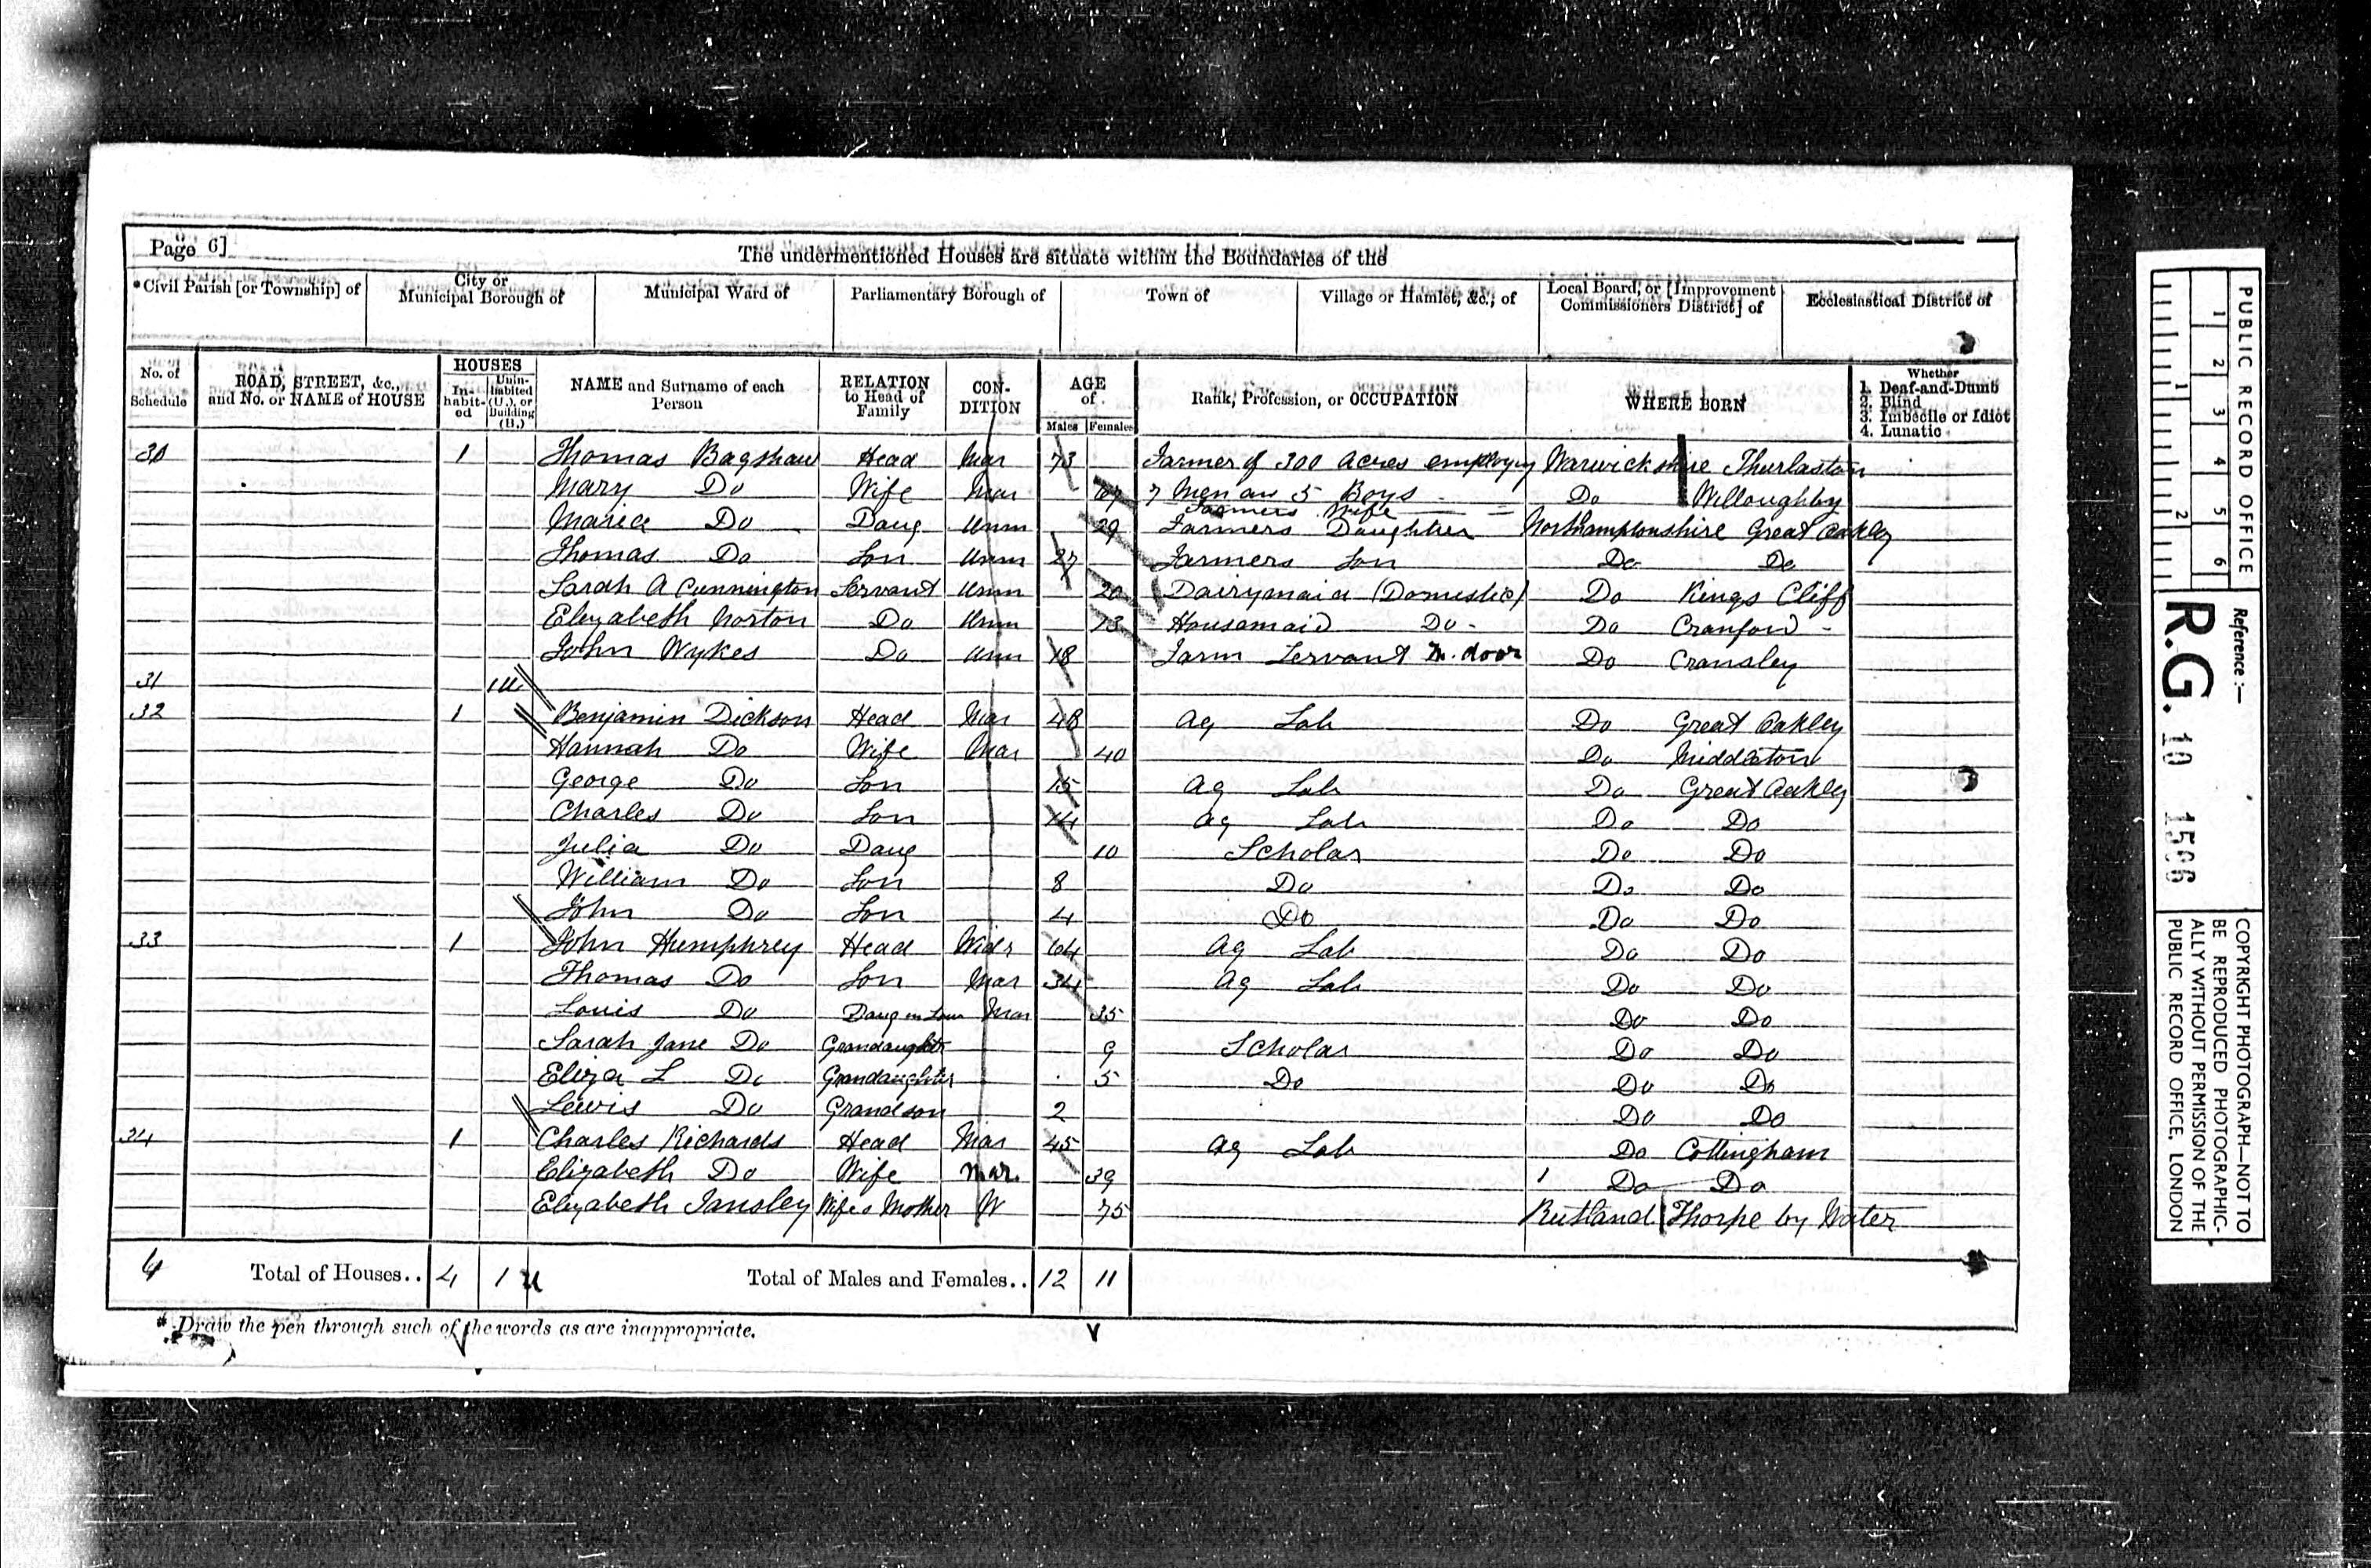 Page 6]
The undermentioned Houses are situate within the Boundaries of the
*Civil Parish [or Township] of
City or Municipal Borough of
Municipal Ward of
Parliamentary Borough of
Town of
Village or Hamlet, &c., of
Local Board, or [Improvement Commissioners District] of
Ecclesiastical District of
No. of Schedule
ROAD, STREET, &c., and No. or NAME of HOUSE
HOUSES
In-habit-ed
Unin-habited (U.), or Building (B.)
NAME and Surname of each Person
RELATION to Head of Family
CON-DITION
AGE of
Males Females
Rank, Profession, or OCCUPATION
WHERE BORN
Whether
1. Deaf-and-Dumb
2. Blind
3. Imbecile or Idiot
4. Lunatic
30 1 Thomas Bagshaw Head Mar 73 Farmer of 300 Acres employing Warwickshire Thurlaston
Mary Do Wife Mar 67 7 Men an 5 Boys Do Willoughby
Farmers Wife
Maria Do Daug Unm 29 Farmers Daughter Northamptonshire Great Oakley
Thomas Do Son Unm 27 Farmers Son Do Do
Sarah A Cunnington Servant Unm 20 Dairymaid (Domestic) Do Kings Cliff
Elizabeth Norton Do Unm Housemaid Do Do Cranford
John Wykes Do Unm 18 Farm Servant In. door Do Cransley
31 1U
32 1 Benjamin Dickson Head Mar 48 Ag Lab Do Great Oakley
Hannah Do Wife Mar 40 Do Middleton
George Do Son 15 Ag Lab Do Great Oakley
Charles Do Son 14 Ag Lab Do Do
Julia Do Daug 10 Scholar Do Do
William Do Son 8 Do Do Do
John Do Son 4 Do Do Do
33 1 John Humphrey Head Widr 64 Ag Lab Do Do
Thomas Do Son Mar 34 Ag Lab Do Do
Louis Do Daug in Law Mar 35 Do Do
Sarah Jane Do Grandaughter 9 Scholar Do Do
Eliza L Do Grandaughter 5 Do Do Do
Lewis Do Grandson 2 Do Do
34 1 Charles Richards Head Mar 45 Ag Lab Do Cottingham
Elizabeth Do Wife Mar. 39 Do Do
Elizabeth Tansley Wifes Mother W 75 Rutland Thorpe by Water
4 Total of Houses.. 4 1 u Total of Males and Females.. 12 11
* Draw the pen through such of the words as are inappropriate.
PUBLIC RECORD OFFICE
1 2 3 4 5 6
1 2
Reference :—
R.G. 10
COPYRIGHT PHOTOGRAPH—NOT TO
BE REPRODUCED PHOTOGRAPHIC-
ALLY WITHOUT PERMISSION OF THE
PUBLIC RECORD OFFICE, LONDON